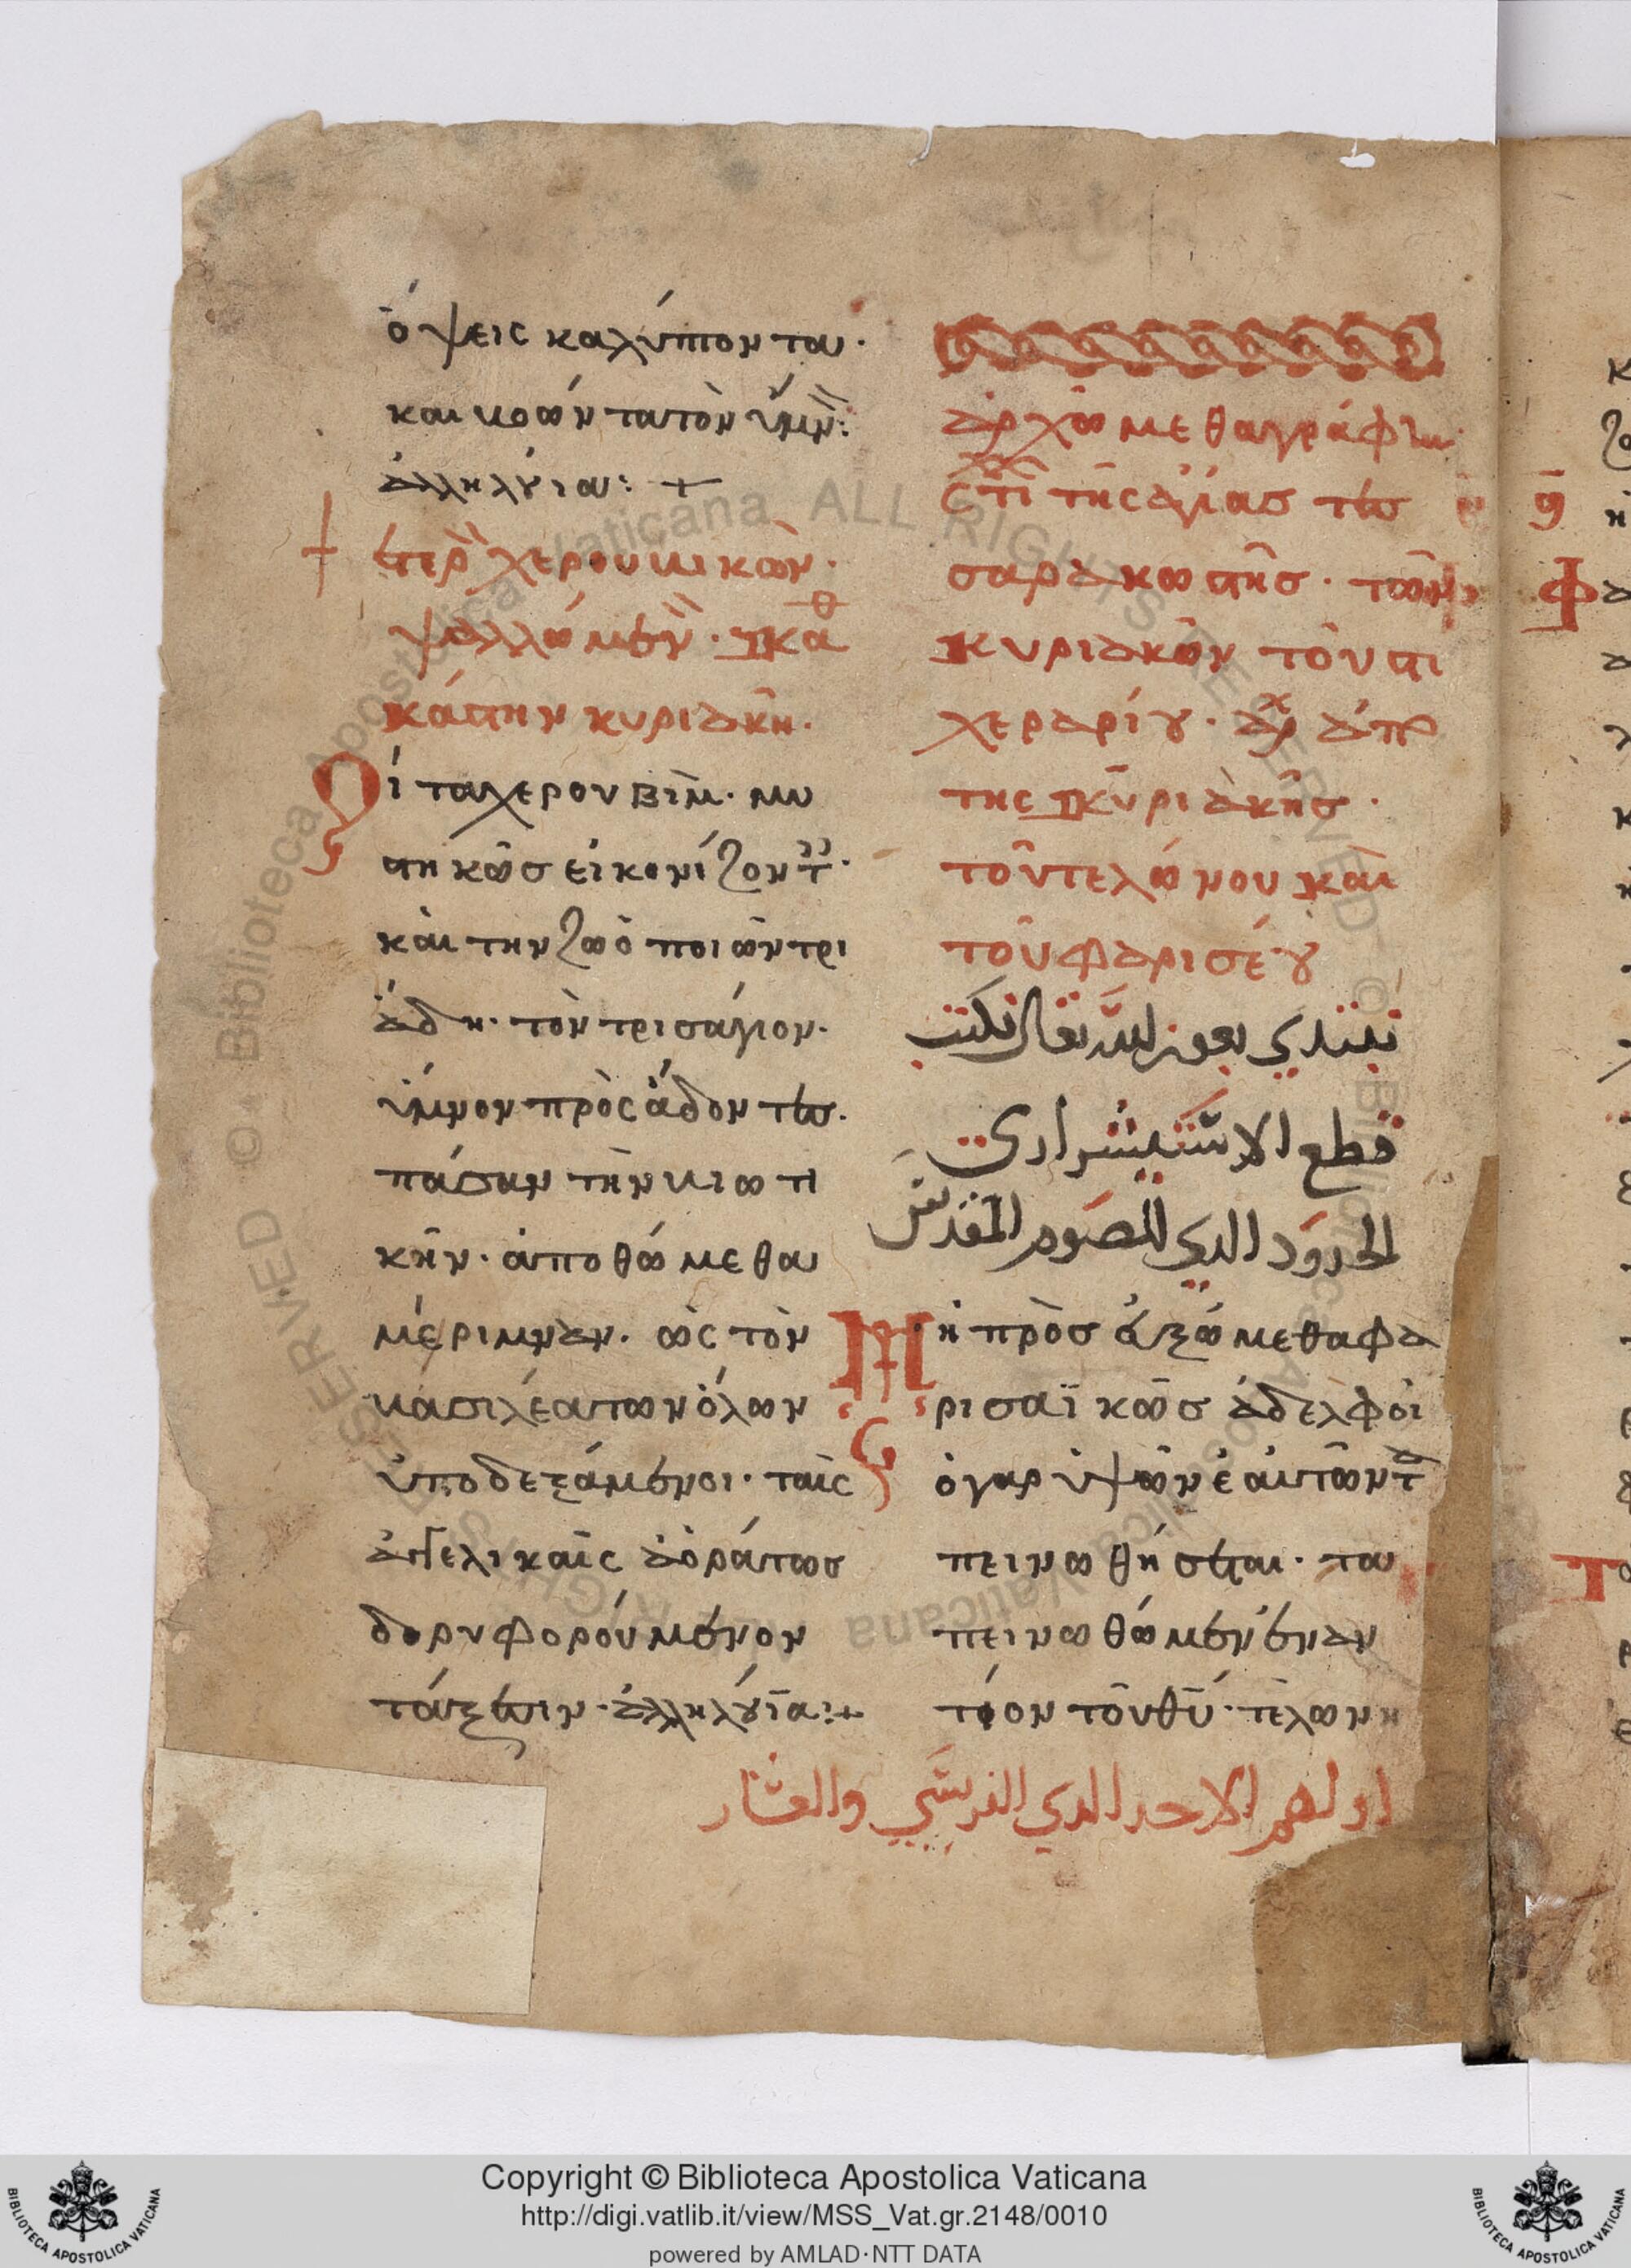 ὄψεις καλύπτονται·
και βοών τα τὸν ὕμν:
ἀλληλούια: +
ἕτερ χερουβικὸν·
ψαλλώμεν· καθ
κάστην κυριακὴ·
Οἱ τα χερουβὶμ· μυ
στηκῶσ εἰκονίζοντ·
καὶ την ζωὸ ποιῶν τρι
ἄδη· τὸν τρισάγιον·
ὕμνον πρὸς ἄδοντες·
πάσαν τὴν βιωτι
κὴν· ἀποθώμεθα
μέριμναν· ὡς τὸν
βασιλέα των ὅλων
ὑποδεξάμενοι· ταῖς
ἀγγελικαῖς ἀοράτωσ
δορυφορούμενον
τάξεσιν· ἀλληλούϊα:+
ἀρχώμεθα γράφιν
στι τῆς ἁγίασ τεσ
σαρακωστῆσ· τῶν
κυριακῶν τοῦ στι
χεραρίου· ἀρχ ἀπ
της κυριὰκῆσ·
τοῦ τελώνου καὶ
τοῦ φαρισέου
نبتدي بعون الله تعالى نكتب
قطع الاستيشراري
الحدود الدي للصوم المقدس
Μὴ πρὸσ ἀξώμεθα φα
ρισαϊκῶσ ἀδελφοὶ
ὁ γαρ ὑψῶν ἑαυτῶν τα
πεινωθήσεται· τα
πεινωθώμεν ἐναν
τίον τοῦ θῦ· τελωνη
اولهم الاحد الدي الفريسي والعشار
Copyright © Biblioteca Apostolica Vaticana
http://digi.vatlib.it/view/MSS_Vat.gr.2148/0010
powered by AMLAD·NTT DATA